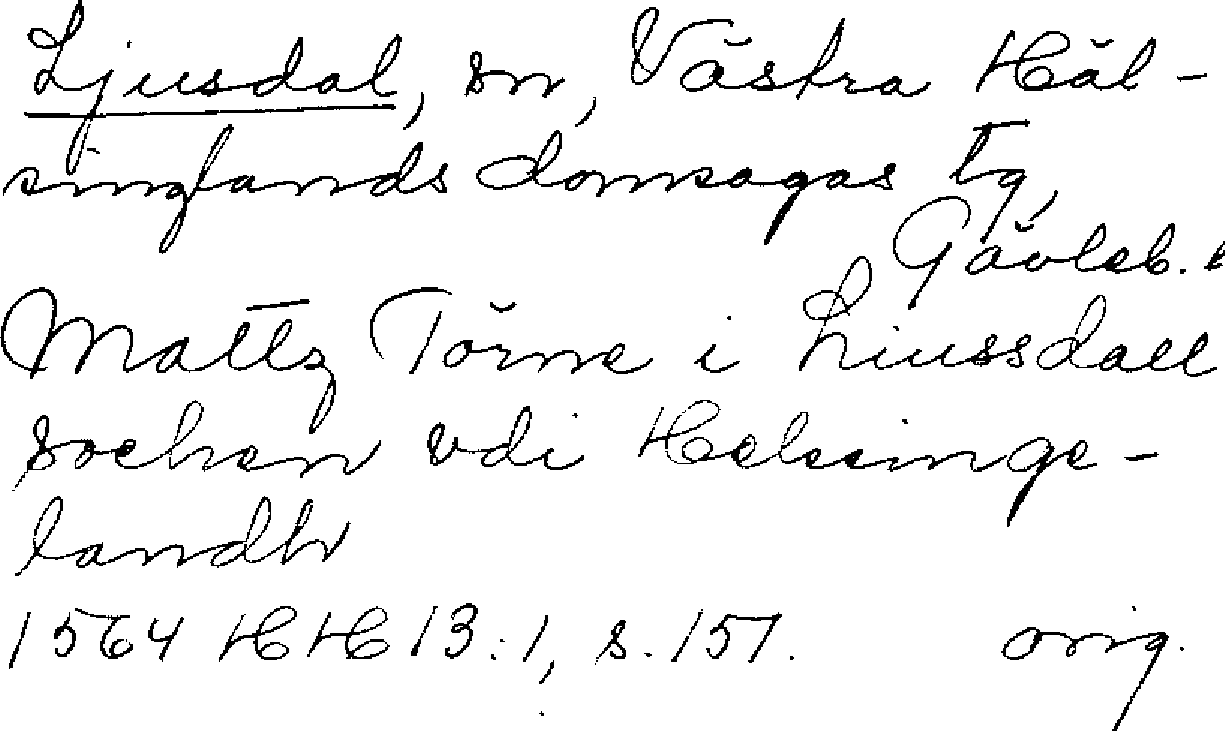 Ljusdal, sn, Västra Häl-
singlands domsagas tg,
Gävleb. l
Mattz Törne i Liussdall
sochen vdi Helsinge-
landh
1564 HH 13:1, s. 151. orig.